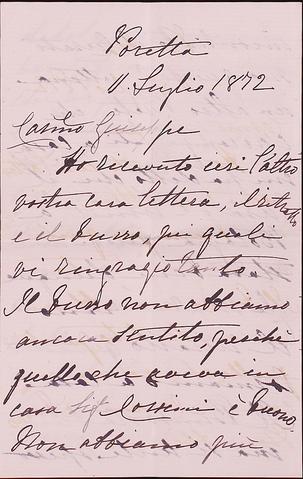 Poretta
11 Luglio 1872
Carmo Giuseppe
Ho ricevuto ieri l'altro
vostra cara lettera, il
e il burro, pei quali
vi ringrazio tanto.
Il burro non abbiamo
ancora sentito, perchè
quello che aveva in
casa Sigr Corsini è buono.
Non abbiamo più